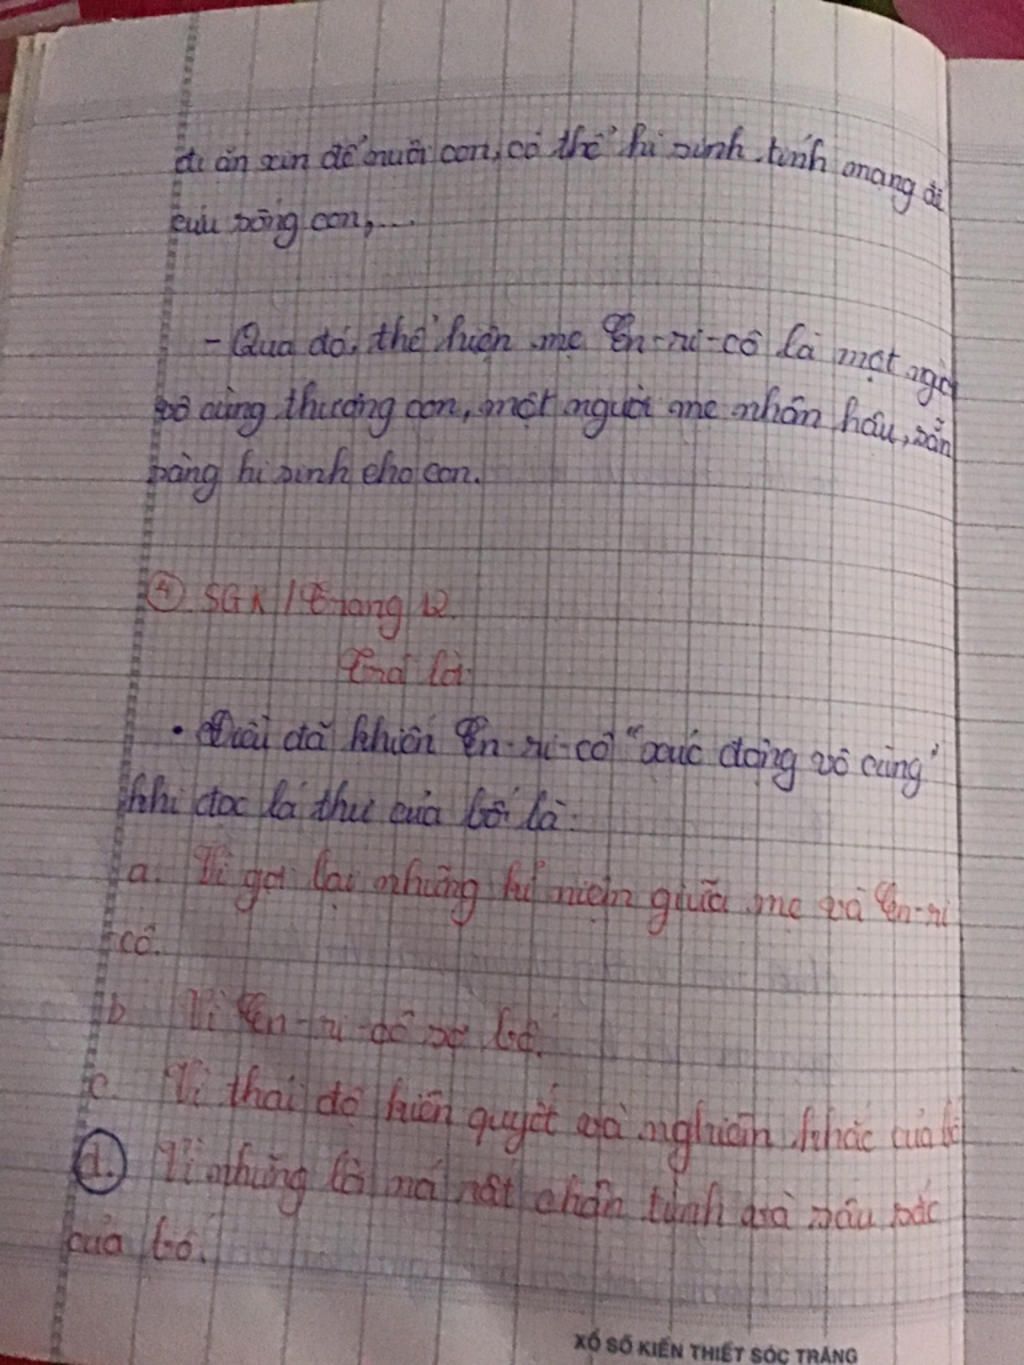 đi ăn xin để nuôi con, có thể hi sinh tính mạng để
cứu sống con,...
- Qua đó, thể hiện mẹ En-ri-cô là một ngời
vô cùng thương con, một người mẹ nhân hâu, sẵn
sàng hi sinh cho con.
④ SGK / Trang 12
Trả lời
• Điều đã khiến En-ri-cô "xúc động vô cùng"
khi đọc lá thư của bố là:
a. Vì gợi lại những kỉ niệm giữa mẹ và En-ri
-cô.
b. Vì En-ri-cô sợ bố.
c. Vì thái độ kiên quyết và nghiêm khắc của bố
d. Vì những lời nói rất chân tình và sâu sắc
của bố.
XỔ SỐ KIẾN THIẾT SÓC TRĂNG